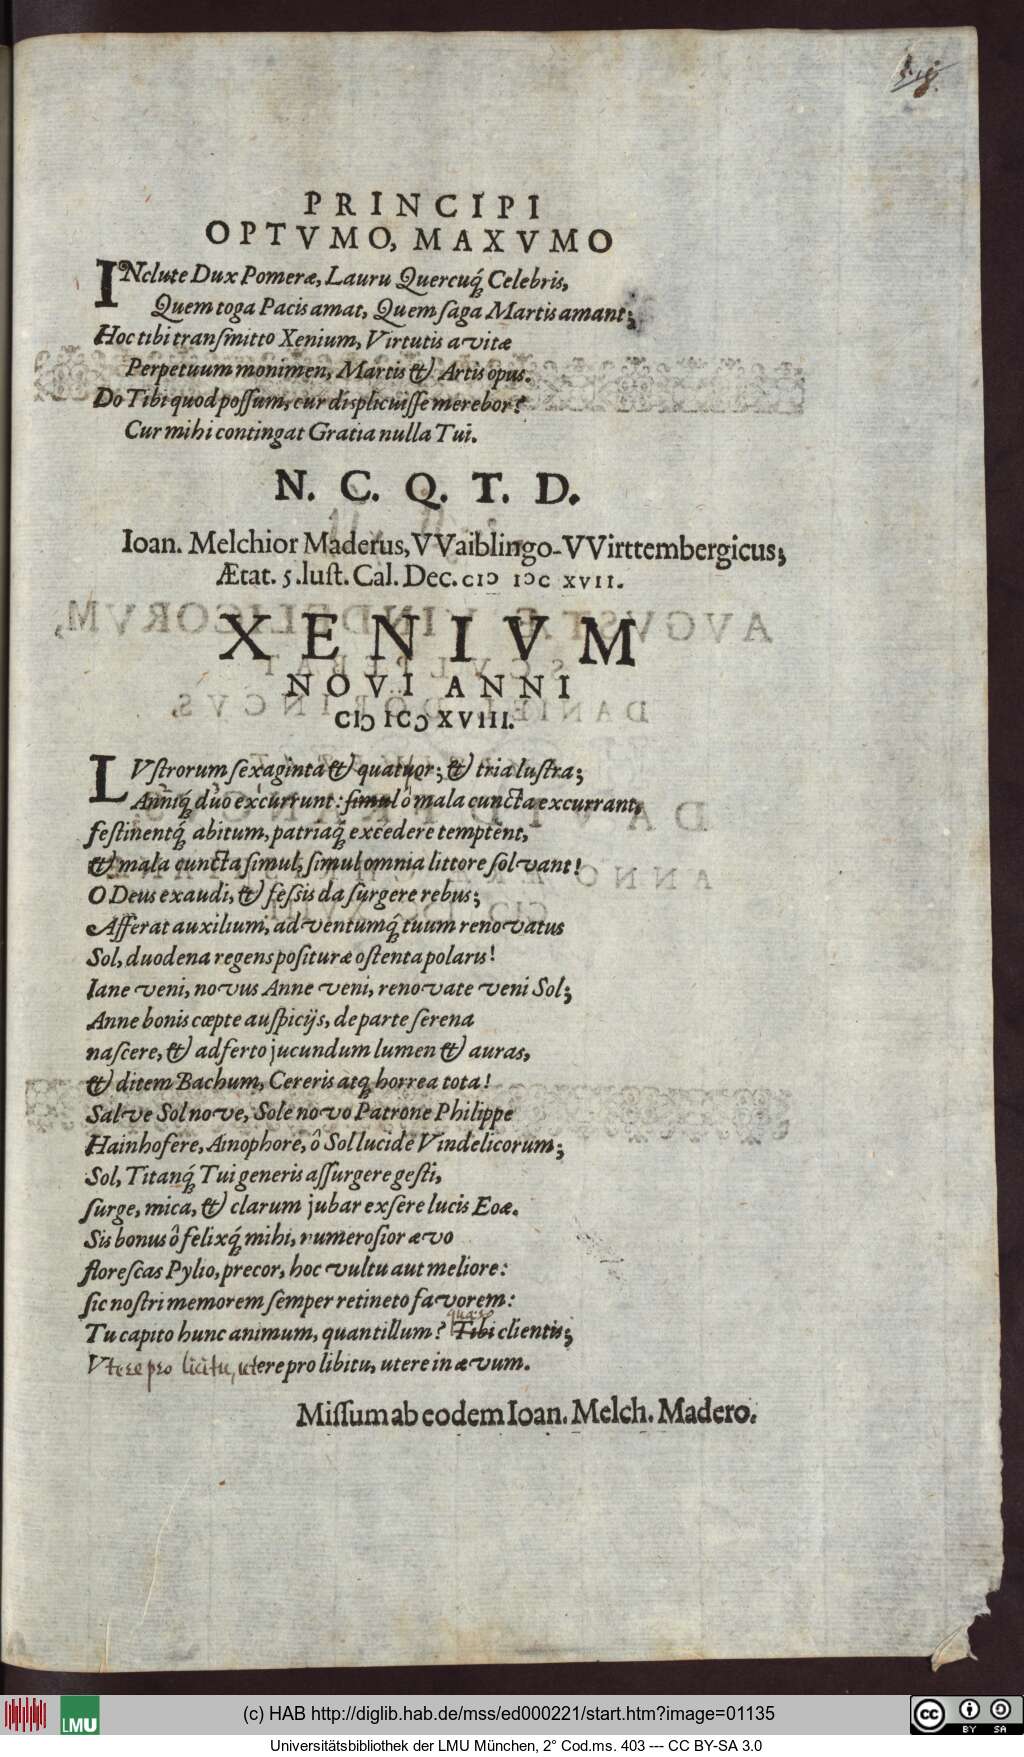 PRINCIPI
OPTVMO, MAXVMO
INclute Dux Pomeræ, Lauru Quercuq́; Celebris,
Quem toga Pacis amat, Quem saga Martis amant;
Hoc tibi transmitto Xenium, Virtutis avitæ
Perpetuum monimen, Martis & Artis opus.
Do Tibi quod possum, cur displicuisse merebor?
Cur mihi contingat Gratia nulla Tui.
N. C. Q. T. D.
Ioan. Melchior Maderus, VVaiblingo-VVirttembergicus;
Ætat. 5. lust. Cal. Dec. CIↃ IↃC XVII.
XENIVM
NOVI ANNI
CIↃ ICↃ XVIII.
LVstrorum sexaginta & quatuor; & tria lustra;
Anniq́; duo excurrunt: simul ô mala cuncta excurrant,
festinentq́; abitum, patriaq́; excedere temptent,
& mala cuncta simul, simul omnia littore solvant!
O Deus exaudi, & fessis da surgere rebus;
Afferat auxilium, adventumq́; tuum renovatus
Sol, duodena regens posituræ ostenta polaris!
Iane veni, novus Anne veni, renovate veni Sol;
Anne bonis cœpte auspicijs, de parte serena
nascere, & adferto jucundum lumen & auras,
& ditem Bachum, Cereris atq; horrea tota!
Salve Sol nove, Sole novo Patrone Philippe
Hainhofere, Ainophore, ô Sol lucide Vindelicorum;
Sol, Titanq́; Tui generis assurgere gesti,
surge, mica, & clarum jubar exsere lucis Eoæ.
Sis bonus ô felixq́; mihi, numerosior ævo
florescas Pylio, precor, hoc vultu aut meliore:
sic nostri memorem semper retineto favorem:
Tu capito hunc animum, quantillum? Tibi clientis;
Vtere pro licitu, utere pro libitu, utere in ævum.
Missum ab eodem Ioan. Melch. Madero.
(c) HAB http://diglib.hab.de/mss/ed000221/start.htm?image=01135
LMU
cc BY SA
Universitätsbibliothek der LMU München, 2° Cod.ms. 403 --- CC BY-SA 3.0